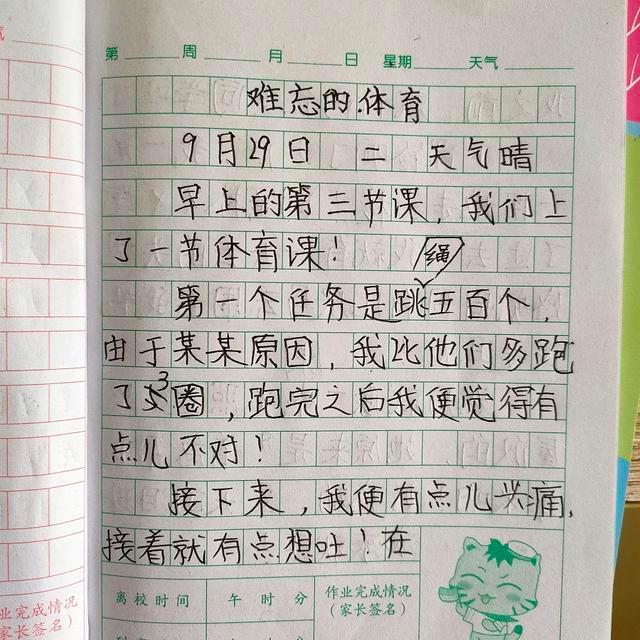 第 周 月 日 星期 天气
难忘的体育
9月29日 二 天气晴
早上的第三节课，我们上
了一节体育课！
绳
第一个任务是跳五百个，
由于某某原因，我比他们多跑
了3圈，跑完之后我便觉得有
点儿不对！
接下来，我便有点儿头痛，
接着就有点想吐！在
离校时间 午 时 分 作业完成情况
（家长签名）
业完成情况
家长签名）